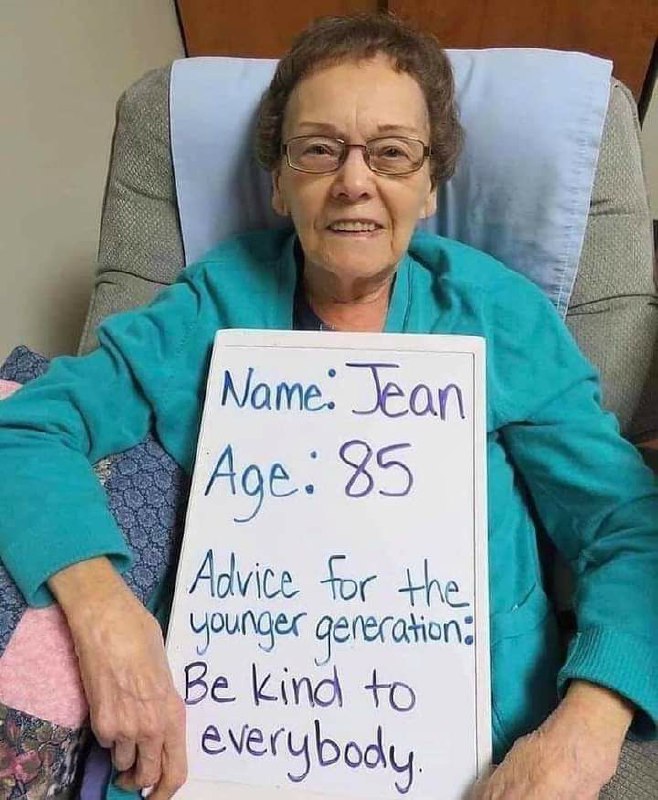 Name: Jean
Age: 85
Advice for the
younger generation:
Be kind to
everybody.